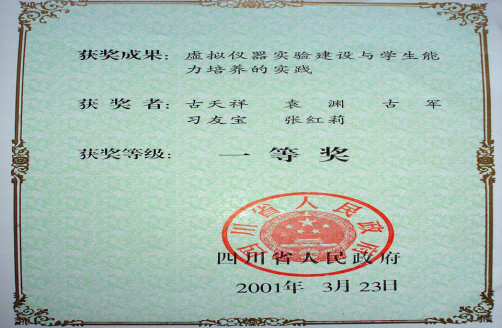 获奖成果：虚拟仪器实验建设与学生能
力培养的实践
获奖者：古天祥 袁渊 古军
习友宝 张红莉
获奖等级：一等奖
四川省人民政府
四川省人民政府
2001年 3月23日